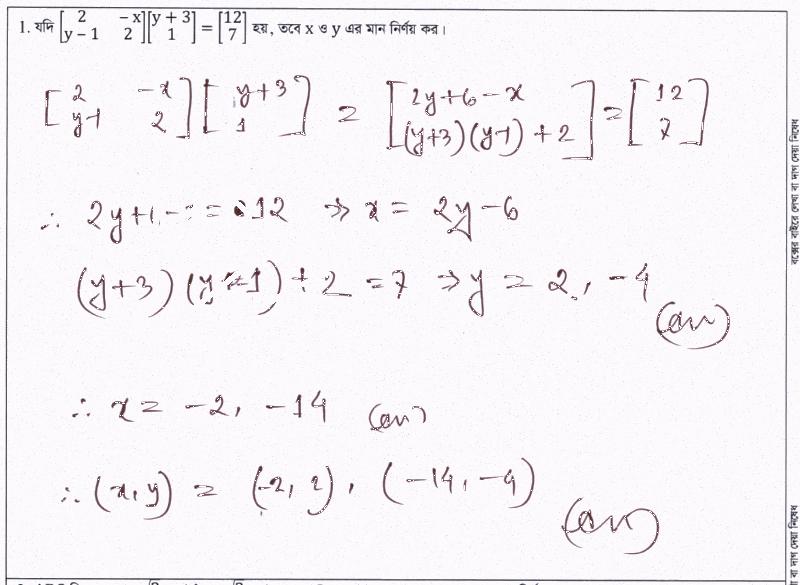 1. যদি [2 −x y − 1 2][y + 3 1] = [12 7] হয়, তবে x ও y এর মান নির্ণয় কর।
[2 -x y-1 2] [y+3 1] = [2y+6-x (y+3)(y-1)+2] = [12 7]
∴ 2y+ = 12 ⇒ x = 2y-6
(y+3)(y-1)+2 = 7 ⇒ y = 2, -4
(an)
∴ x = -2, -14 (an)
∴ (x, y) = (-2, 2), (-14, -4)
(an)
বক্সের বাইরে লেখা বা দাগ দেয়া নিষেধ
বা দাগ দেয়া নিষেধ